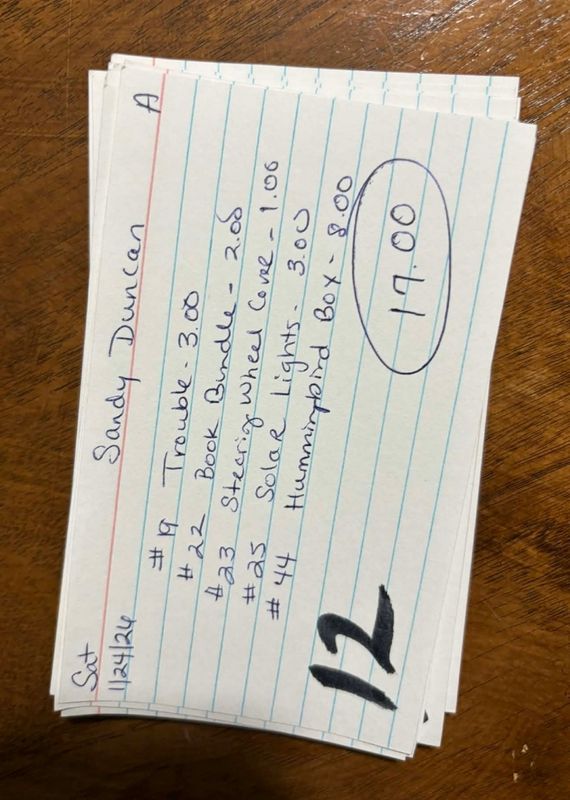 Sat Sandy Duncan A
1/24/26
#19 Trouble - 3.00
#22 Book Bundle - 2.00
#23 Steering Wheel Cover - 1.00
#25 Solar Lights - 3.00
#44 Hummingbird Box - 8.00
17.00
12